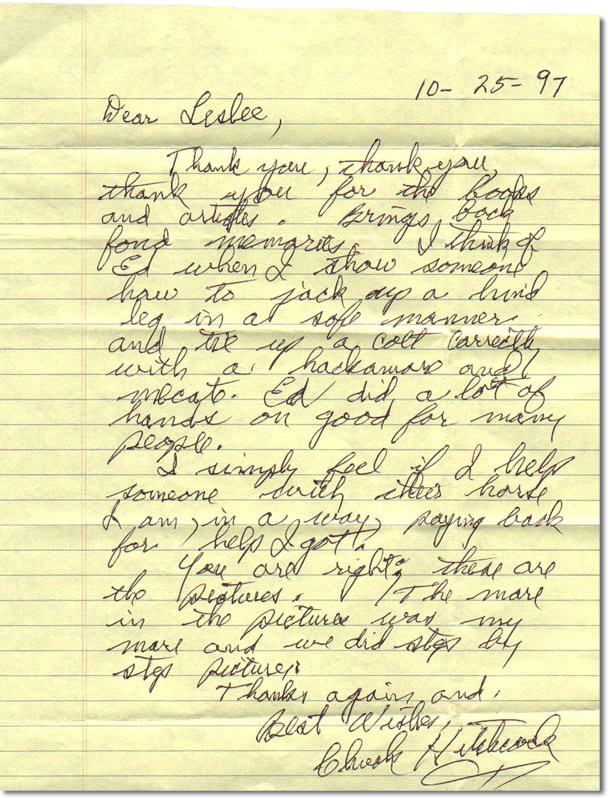 10- 25- 97
Dear Leslee,
Thank you, thank you,
thank you for the books
and articles. Brings back
fond memories. I think of
Ed when I show someone
how to jack up a hind
leg in a safe manner.
and tie up a colt correctly
with a hackamore and
mecate. Ed did a lot of
hands on good for many
people.
I simply feel if I help
someone with their horse
I am, in a way, paying back
for help I got.
You are right; these are
the pictures. The mare
in the pictures was my
mare and we did step by
step pictures.
Thanks again, and.
Best Wishes,
Chuck Hitchcock